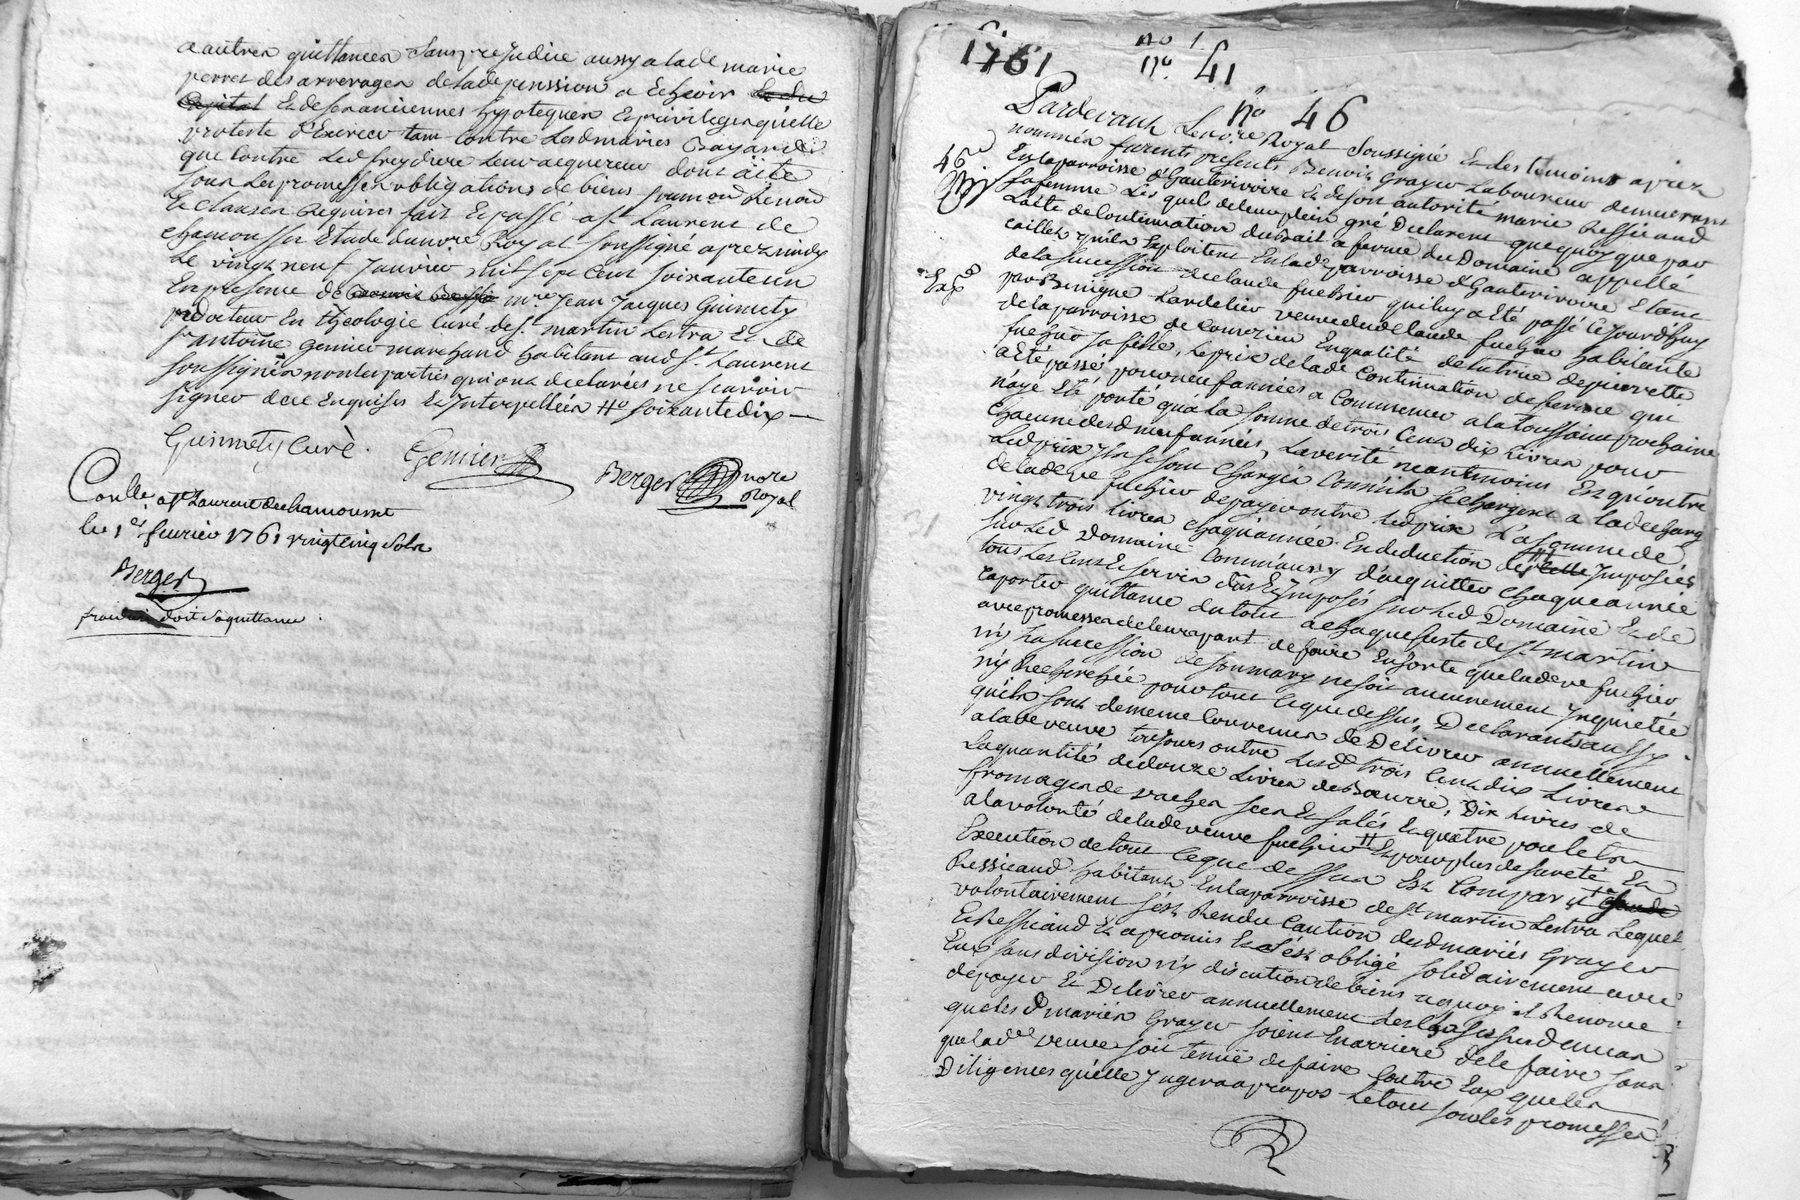 a autres quittances sans prejudice aussy a lade marie
perret des arrerages de lade penssion a Echeoir et du
Capital Et de ses anciennes hypoteques Et privileges quelle
proteste d'Exercer tant Contre Lesd mariés Bayard
que Contre Led freydiere leur acquereur dont acte
sous Les promesses obligations de biens soumons Renons
Et clauses Requises fait Et passé a St Laurent de
chamousset Etude du nore Royal soussigné aprez midy
Le vingt neuf Janvier mil sept Cent soixante un
En presence de mre Jean Jacques Guimety
docteur En theologie Curé de St martin Lestra Et de
sr antoine genier marchand habitant aud St Laurent
soussignés non les parties qui ont declarées ne scavoir
signer de ce Enquises Et Interpellées # soixante dix
Guimety Curé. Genier Berger nore Royal
Conllé a St Laurent de chamousset
le 1er fevrier 1761 vingt cinq sols
Berger
1761
no 1
no. 41
no 46
Pardevant Le nore Royal soussigné Et des temoins aprez
nommés furents presents Benoit Grayer Laboureur demeurant
En la parroisse d'hauterivoire Et de son autorité marie Ressicaud
sa femme Les quels de leur plein gré Declarent que quoy que par
Lacte de Continuation du Bail a ferme du Domaine appellé
caillet quils Exploitent En lade parroisse d'hauterivoire Etant
de la succession de claude fuchier qui luy a Eté passé Cejourd'huy
par Benigne Lardelier veuve dud claude fuchier habitante
de la parroisse de Courzieu En qualité de tutrice de pierrette
fuchier sa fille, Le prix de lade Continuation de ferme qui
a Eté passé pour neuf années a Commencer a la toussaint prochaine
n'aye Eté porté qu'a la somme de trois Cens dix Livres pour
Chacune desd neuf années, La verité neantmoins Est qu'outre
Led prix Ils se sont chargés Comme ils se chargent a la decharge
de lade ve fuchier de payer outre Led prix La somme de
vingt trois Livres chaqu'année En deduction des Imposées
sur Led Domaine Comm'aussy d'acquitter chaque année
tous Les Cens Et servis dus Et Imposés sur Led Domaine Et de
raporter quittance du tout a chaque feste de St martin
avec promesses de leur part de faire En sorte que lade ve fuchier
ny La succession de son mary ne soit aucunement Inquietée
ny Recherchée pour tout Ce que dessus, Declarants aussy
qu'ils sont de meme Convenus de Delivrer annuellement
a lade veuve toujours outre Lesd trois Cens dix Livres
La quantité de douze Livres de Bœurre, Dix Livres de
fromages de vaches secs Et salés Et quatre poulets
a la volonté de lade veuve fuchier # Et pour plus de sureté En
Execution de tout Ce que dessus Est Comparu
Ressicaud habitant En la parroisse de St martin Lestra Lequel
volontairement s'est Rendu Caution desd mariés Grayer
Et Ressicaud Et a promis Et s'est obligé solidairement avec
Eux sans division ny discution de biens a quoy il Renonce
de payer Et Delivrer annuellement Les choses susdemees
que lesd mariés Grayer soient En arriere de le faire sans
que lade veuve soit tenüe de faire Contre Eux que les
Diligences qu'elle Jugera a propos Le tout sous les promesses